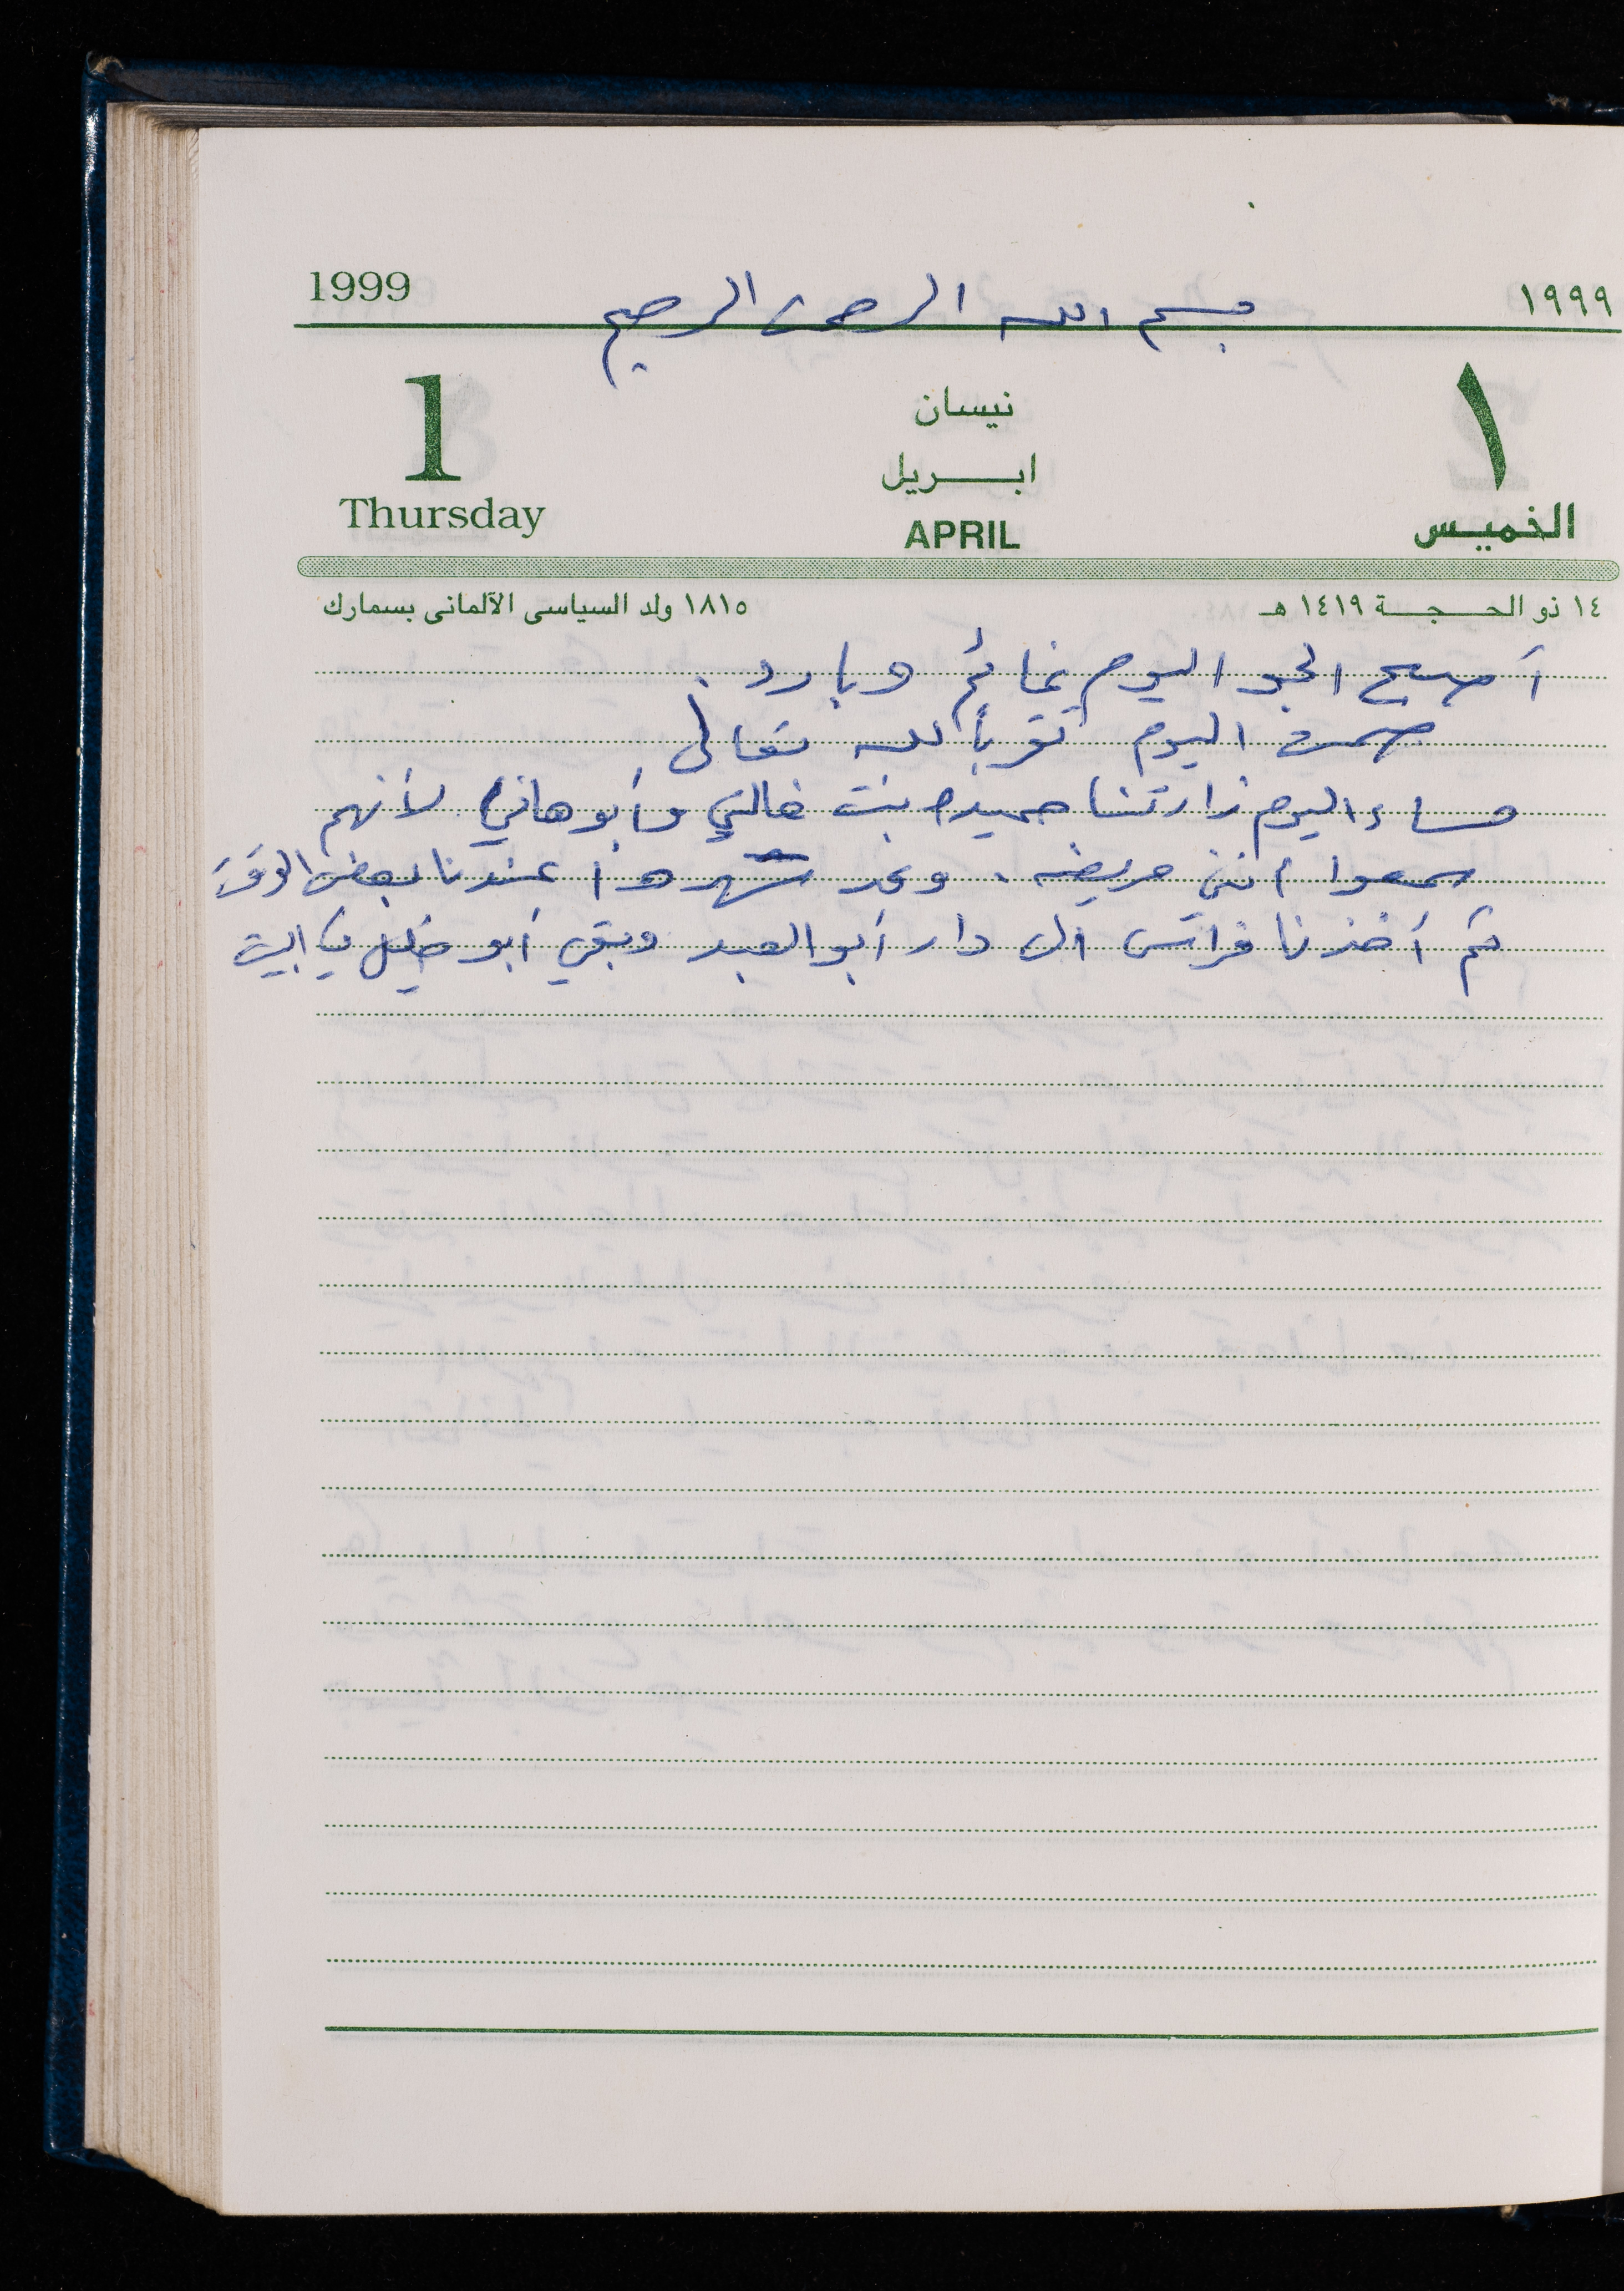 ١٩٩٩ 1999
بسم الله الرحمن الرحيم
١ نيسان 1
ابـــريل
الخميس APRIL Thursday
١٤ ذو الحـــجـــة ١٤١٩ هـ ١٨١٥ ولد السياسى الآلمانى بسمارك
أصبح الجو اليوم غائم وبارد.
صمت اليوم تقرباً لله تعالى
مساء اليوم زارتنا حميده بنت خالتي وأبو هاني لأنهم
سمعوا أنني مريضه. وقد سهروا عندنا بعض الوقت
ثم أخذنا فراس الى دار أبو العبد وبقي أبو خليل في البيت